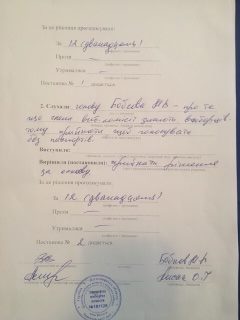 За це рішення проголосували:
За 12 (дванадцять)
Проти —
Утримались —
Постанова № 1 додається
2. Слухали голову Бобєва М.В. - про те
що самі знають виборців
тому прийняти щоб голосувати
без паспортів.
Виступили:
Вирішили (постановили): прийняти рішення
за основу.
За це рішення проголосували:
За 12 (дванадцять)
Проти —
Утримались —
Постанова № 2 додається
Бобєв М.В.
О.І